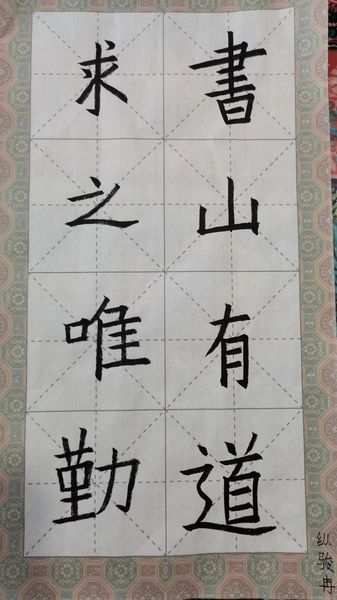 書山有道
求之唯勤
纵骏冉